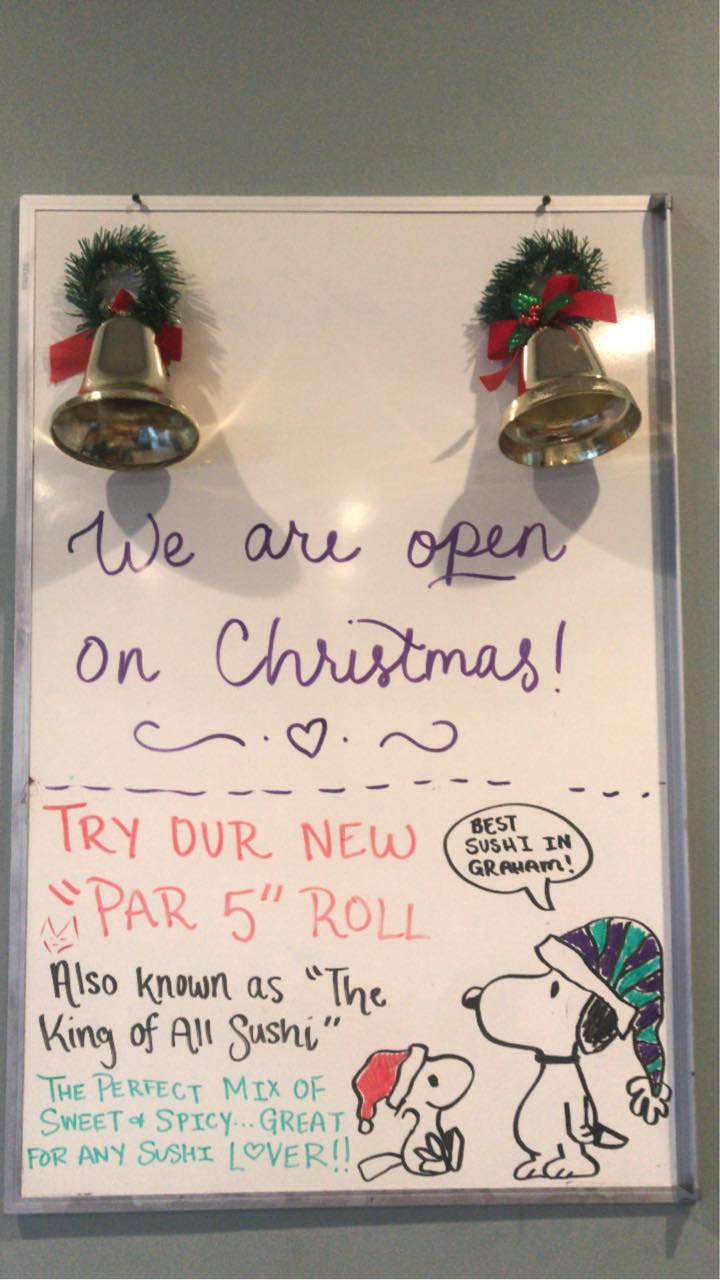 We are open
on Christmas!
TRY OUR NEW
"PAR 5" ROLL
Also known as "The
King of All Sushi"
THE PERFECT MIX OF
SWEET & SPICY... GREAT
FOR ANY SUSHI L♡VER!!
BEST
SUSHI IN
GRAHAM!